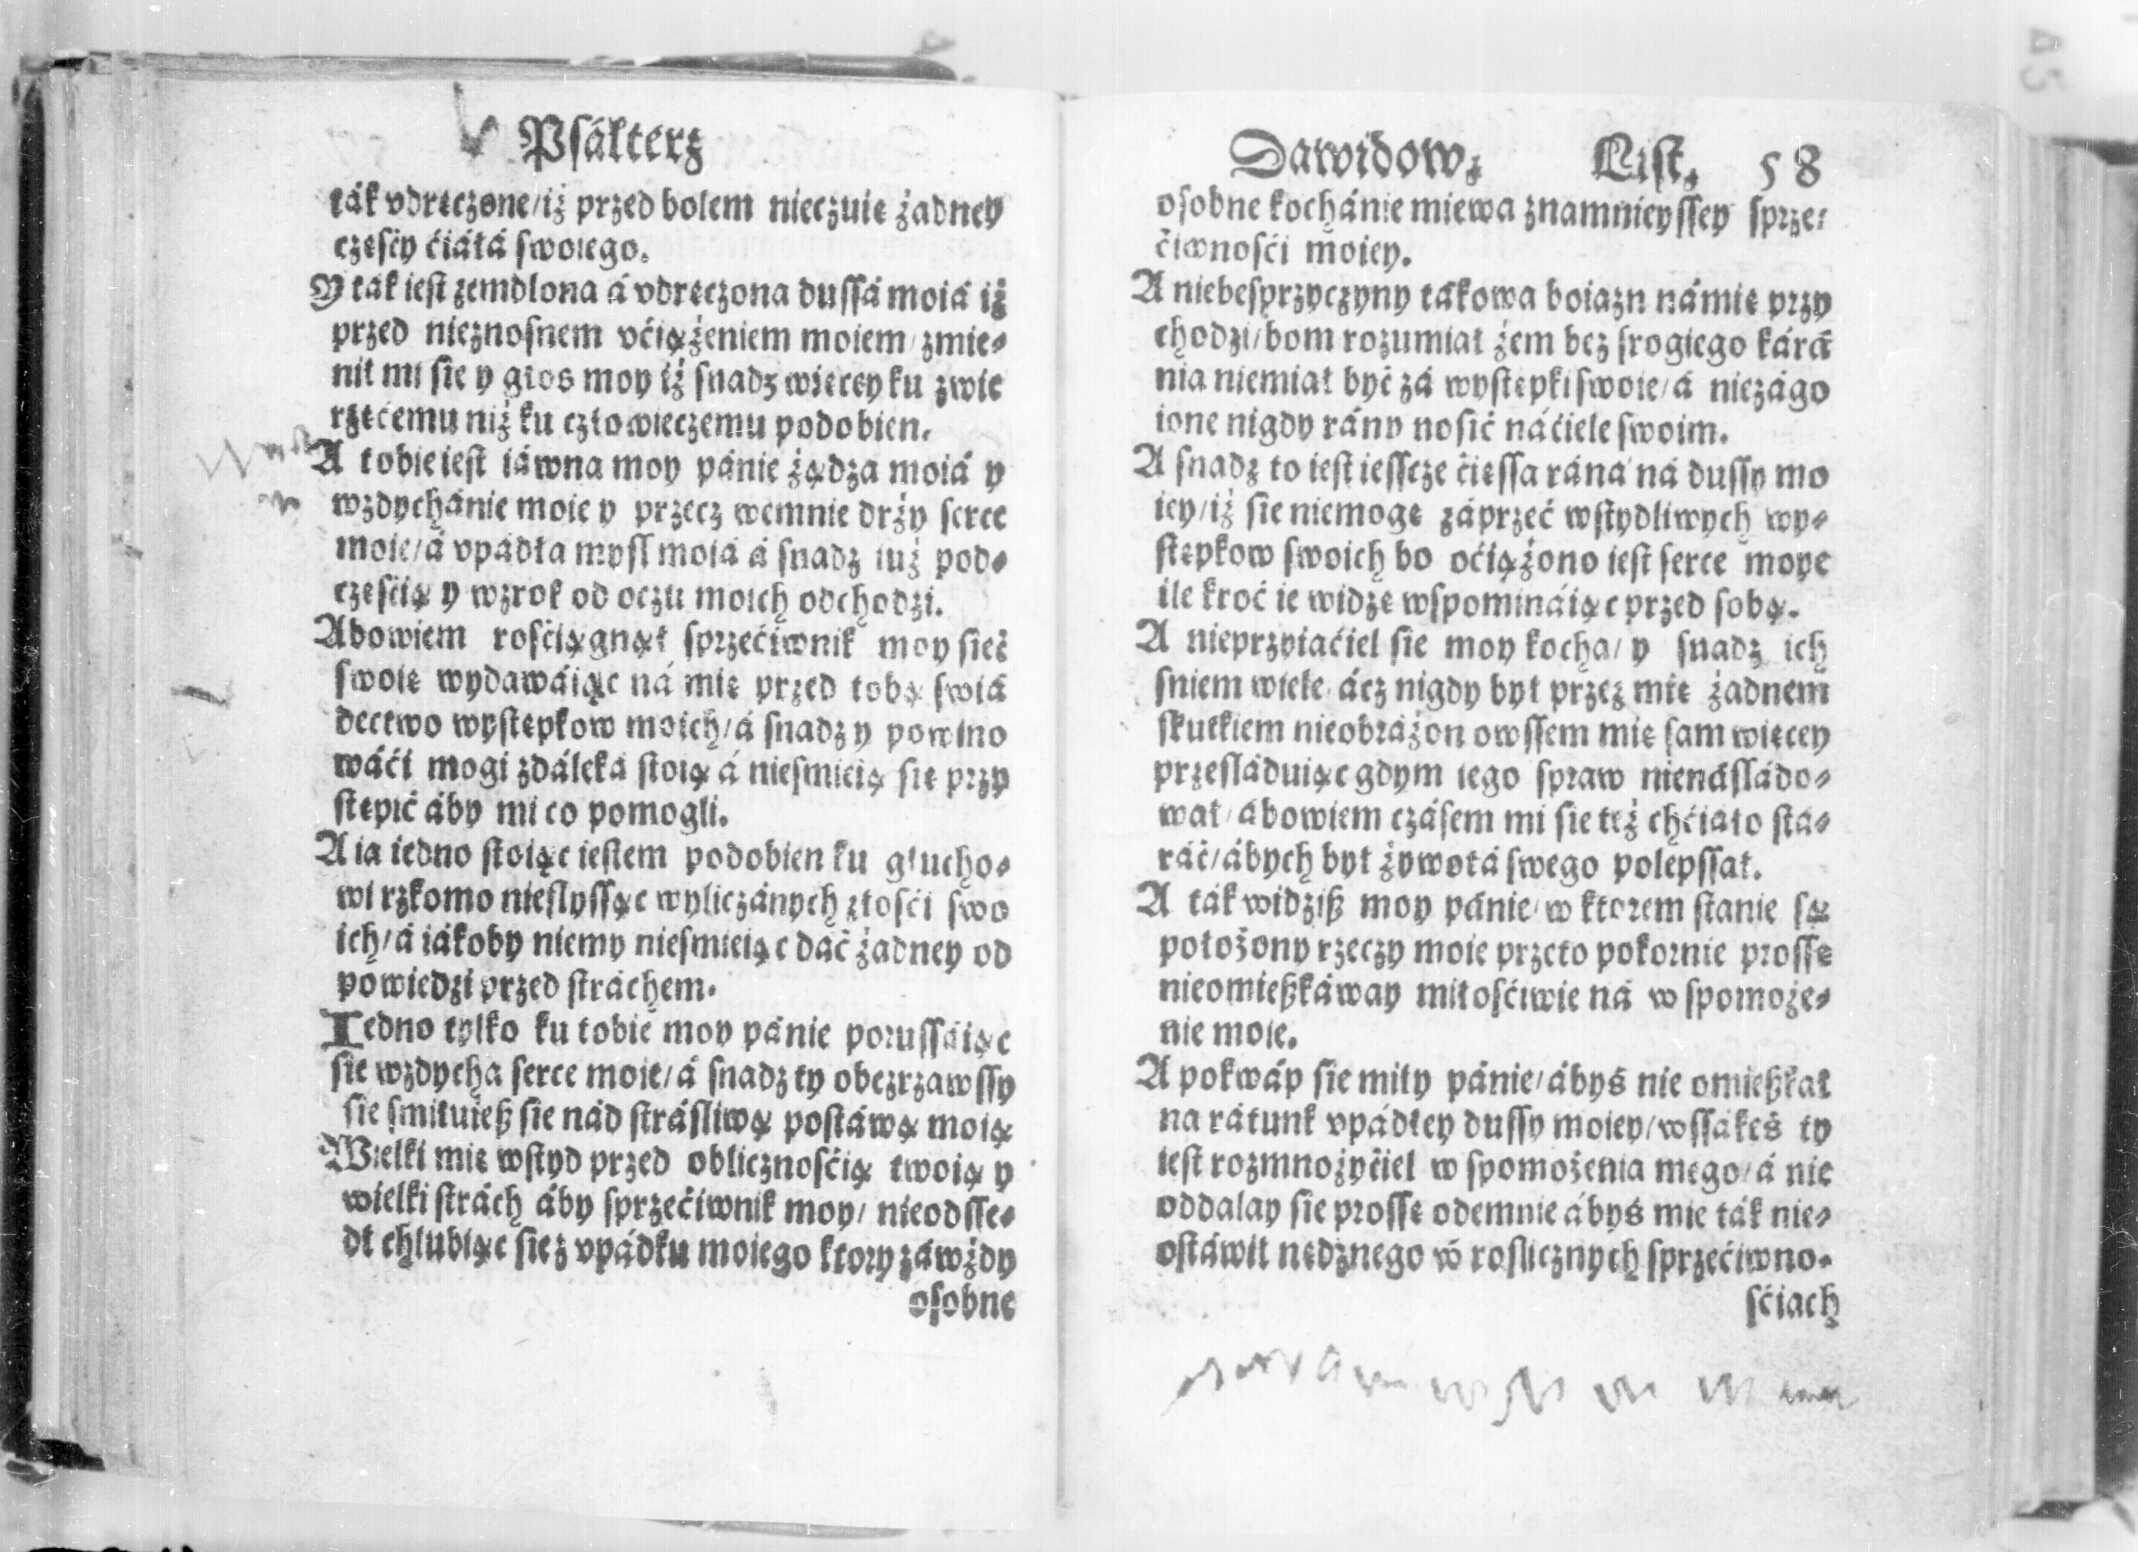 Psálterz
ták vdręczone/iż przed bolem nieczuie żadney
częśćy ćiáłá swoiego.
Y ták iest zemdlona á vdręczona dussá moiá iż
przed nieznosnem vćiążeniem moiem/zmie⸗
nił mi sie y głos moy iż snadz więcey ku zwie
rzęćemu niż ku człowieczemu podobien.
A tobie iest iáwna moy pánie żądza moiá y
wzdychánie moie y przecz wemnie drży serce
moie/á vpádła mysl moiá á snadz iuż pod⸗
częśćią y wzrok od oczu moich odchodzi.
Abowiem rosćiągnął sprzećiwnik moy sieć
swoię wydawáiąc ná mię przed tobą swiá
dectwo występkow moich/á snadz y powino
wáći mogi zdáleká stoią á niesmieią się przy
stępić áby mi co pomogli.
A ia iedno stoiąc iestem podobien ku głucho⸗
wi rzkomo nieslyssąc wyliczánych złośći swo
ich/á iákoby niemy niesmieiąc dáć żadney od
powiedzi przed stráchem.
Iedno tylko ku tobie moy pánie porussáiąc
sie wzdycha serce moie/á snadz ty obezrzawssy
sie smiłuieß sie nád strásliwą postáwą moią
Wielki mię wstyd przed oblicznośćią twoią y
wielki strách áby sprzećiwnik moy/ nieodsse⸗
dł chlubiąc się z vpádku moiego ktory záwżdy
osobne
Dawidow. List. 58
osobne kochánie miewa znamnieyssey sprze⸗
ćiwnośći moiey.
A niebesprzyczyny tákowa boiazn námię przy
chodzi/bom rozumiał żem bez srogiego kárá
nia niemiał być zá występki swoie/á niezágo
ione nigdy rány nosić náćiele swoim.
A snadz to iest iesscze ćięssa ráná ná dussy mo
iey/iż sie niemogę záprzeć wstydliwych wy⸗
stępkow swoich bo oćiążono iest serce moye
ile kroć ie widzę wspomináiąc przed sobą.
A nieprzyiaćiel sie moy kocha/ y snadz ich
sniem wiele/ácz nigdy był przez mię żadnem
skutkiem nieobráżon owssem mię sam więcey
przesláduiąc gdym iego spraw nienásládo⸗
wał/ábowiem czásem mi sie też chćiáło stá⸗
ráć/ábych był żywotá swego polepssał.
A ták widziß moy pánie/w ktorem stanie są
położony rzeczy moie przeto pokornie prossę
nieomießkáway miłośćiwie ná wspomoże⸗
nie moie.
A pokwáp sie miły pánie/ábyś nie omießkał
na rátunk vpádłey dussy moiey/wssákeś ty
iest rozmnożyćiel wspomożenia mego/á nie
oddalay sie prossę odemnie ábyś mie ták nie⸗
ostáwił nędznego w roslicznych sprzećiwno⸗
sćiach